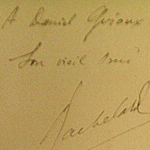 A Daniel Giraux
Son vieil ami
Bachelard